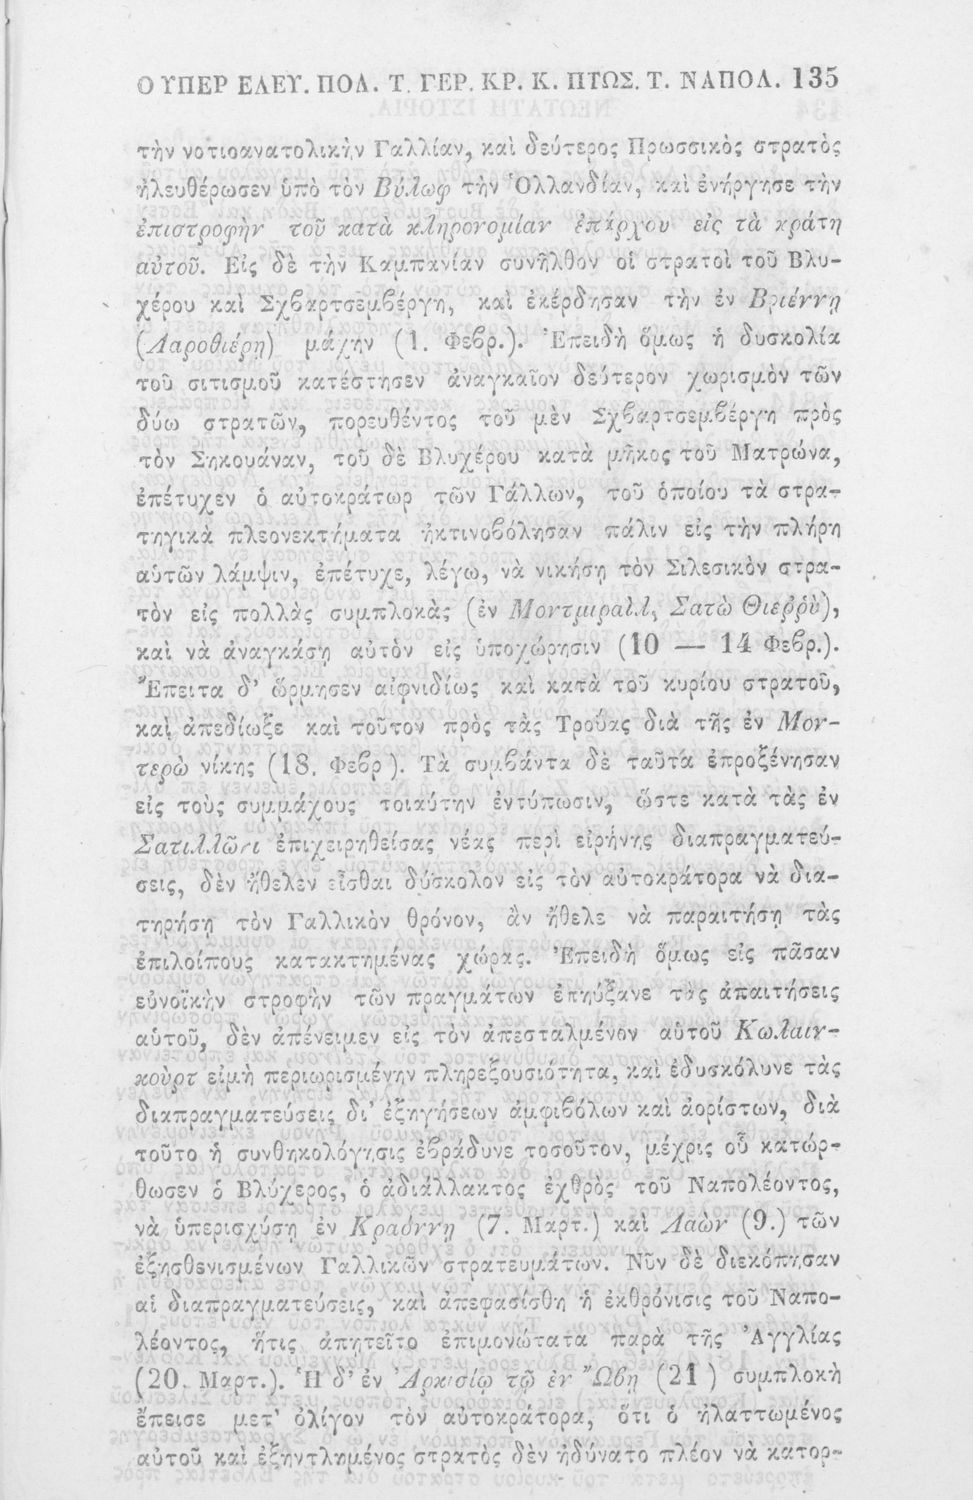 Ο ΥΠΕΡ ΕΛΕΥ. ΠΟΛ. Τ. ΓΕΡ. ΚΡ. Κ. ΠΤΩΣ. Τ. ΝΑΠΟΛ. 135
τὴν νοτιοανατολικὴν Γαλλίαν, καὶ δεύτερος Πρωσσικὸς στρατὸς
ἠλευθέρωσεν ὑπὸ τὸν Βύλωφ τὴν Ὁλλανδίαν, καὶ ἐνήργησε τὴν
ἐπιστροφὴν τοῦ κατὰ κληρονομίαν ἐπάρχου εἰς τὰ κράτη
αὐτοῦ. Εἰς δὲ τὴν Καμπανίαν συνῆλθον οἱ στρατοὶ τοῦ Βλυ-
χέρου καὶ Σχβαρτσεμβέργη, καὶ ἐκέρδησαν τὴν ἐν Βριέννῃ
(Λαροθιέρῃ) μάχην (1. Φεβρ.). Ἐπειδὴ ὅμως ἡ δυσκολία
τοῦ σιτισμοῦ κατέστησεν ἀναγκαῖον δεύτερον χωρισμὸν τῶν
δύω στρατῶν, πορευθέντος τοῦ μὲν Σχβαρτσεμβέργη πρὸς
τὸν Σηκουάναν, τοῦ δὲ Βλυχέρου κατὰ μῆκος τοῦ Ματρώνα,
ἐπέτυχεν ὁ αὐτοκράτωρ τῶν Γάλλων, τοῦ ὁποίου τὰ στρα-
τηγικὰ πλεονεκτήματα ἠκτινοβόλησαν πάλιν εἰς τὴν πλήρη
αὑτῶν λάμψιν, ἐπέτυχε, λέγω, νὰ νικήσῃ τὸν Σιλεσικὸν στρα-
τὸν εἰς πολλὰς συμπλοκὰς (ἐν Μοντμιραὶλ, Σατὼ Θιεῤῥὺ),
καὶ νὰ ἀναγκάσῃ αὐτὸν εἰς ὑποχώρησιν (10 — 14 Φεβρ.).
Ἔπειτα δ’ ὥρμησεν αἰφνιδίως καὶ κατὰ τοῦ κυρίου στρατοῦ,
καὶ ἀπεδίωξε καὶ τοῦτον πρὸς τὰς Τρούας διὰ τῆς ἐν Μον-
τερὼ νίκης (18. Φεβρ). Τὰ συμβάντα δὲ ταῦτα ἐπροξένησαν
εἰς τοὺς συμμάχους τοιαύτην ἐντύπωσιν, ὥστε κατὰ τὰς ἐν
Σατιλλῶνι ἐπιχειρηθείσας νέας περὶ εἰρήνης διαπραγματεύ-
σεις, δὲν ἤθελεν εἶσθαι δύσκολον εἰς τὸν αὐτοκράτορα νὰ δια-
τηρήσῃ τὸν Γαλλικὸν θρόνον, ἂν ἤθελε νὰ παραιτήσῃ τὰς
ἐπιλοίπους κατακτημένας χώρας. Ἐπειδὴ ὅμως εἰς πᾶσαν
εὐνοϊκὴν στροφὴν τῶν πραγμάτων ἐπηύξανε τὰς ἀπαιτήσεις
αὑτοῦ, δὲν ἀπένειμεν εἰς τὸν ἀπεσταλμένον αὑτοῦ Κωλαιν-
κοὺρτ εἰμὴ περιωρισμένην πληρεξουσιότητα, καὶ ἐδυσκόλυνε τὰς
διαπραγματεύσεις δι’ ἐξηγήσεων ἀμφιβόλων καὶ ἀορίστων, διὰ
τοῦτο ἡ συνθηκολόγησις ἐβράδυνε τοσοῦτον, μέχρις οὗ κατώρ-
θωσεν ὁ Βλύχερος, ὁ ἀδιάλλακτος ἐχθρὸς τοῦ Ναπολέοντος,
νὰ ὑπερισχύσῃ ἐν Κραόννῃ (7. Μαρτ.) καὶ Λαὼν (9.) τῶν
ἐξησθενισμένων Γαλλικῶν στρατευμάτων. Νῦν δὲ διεκόπησαν
αἱ διαπραγματεύσεις, καὶ ἀπεφασίσθη ἡ ἐκθρόνισις τοῦ Ναπο-
λέοντος, ἥτις ἀπῃτεῖτο ἐπιμονώτατα παρὰ τῆς Ἀγγλίας
(20. Μαρτ.). Ἡ δ’ ἐν Ἀρκισίῳ τῷ ἐν Ὤβῃ (21) συμπλοκὴ
ἔπεισε μετ’ ὀλίγον τὸν αὐτοκράτορα, ὅτι ὁ ἠλαττωμένος
αὐτοῦ καὶ ἐξηντλημένος στρατὸς δὲν ἠδύνατο πλέον νὰ κατορ-